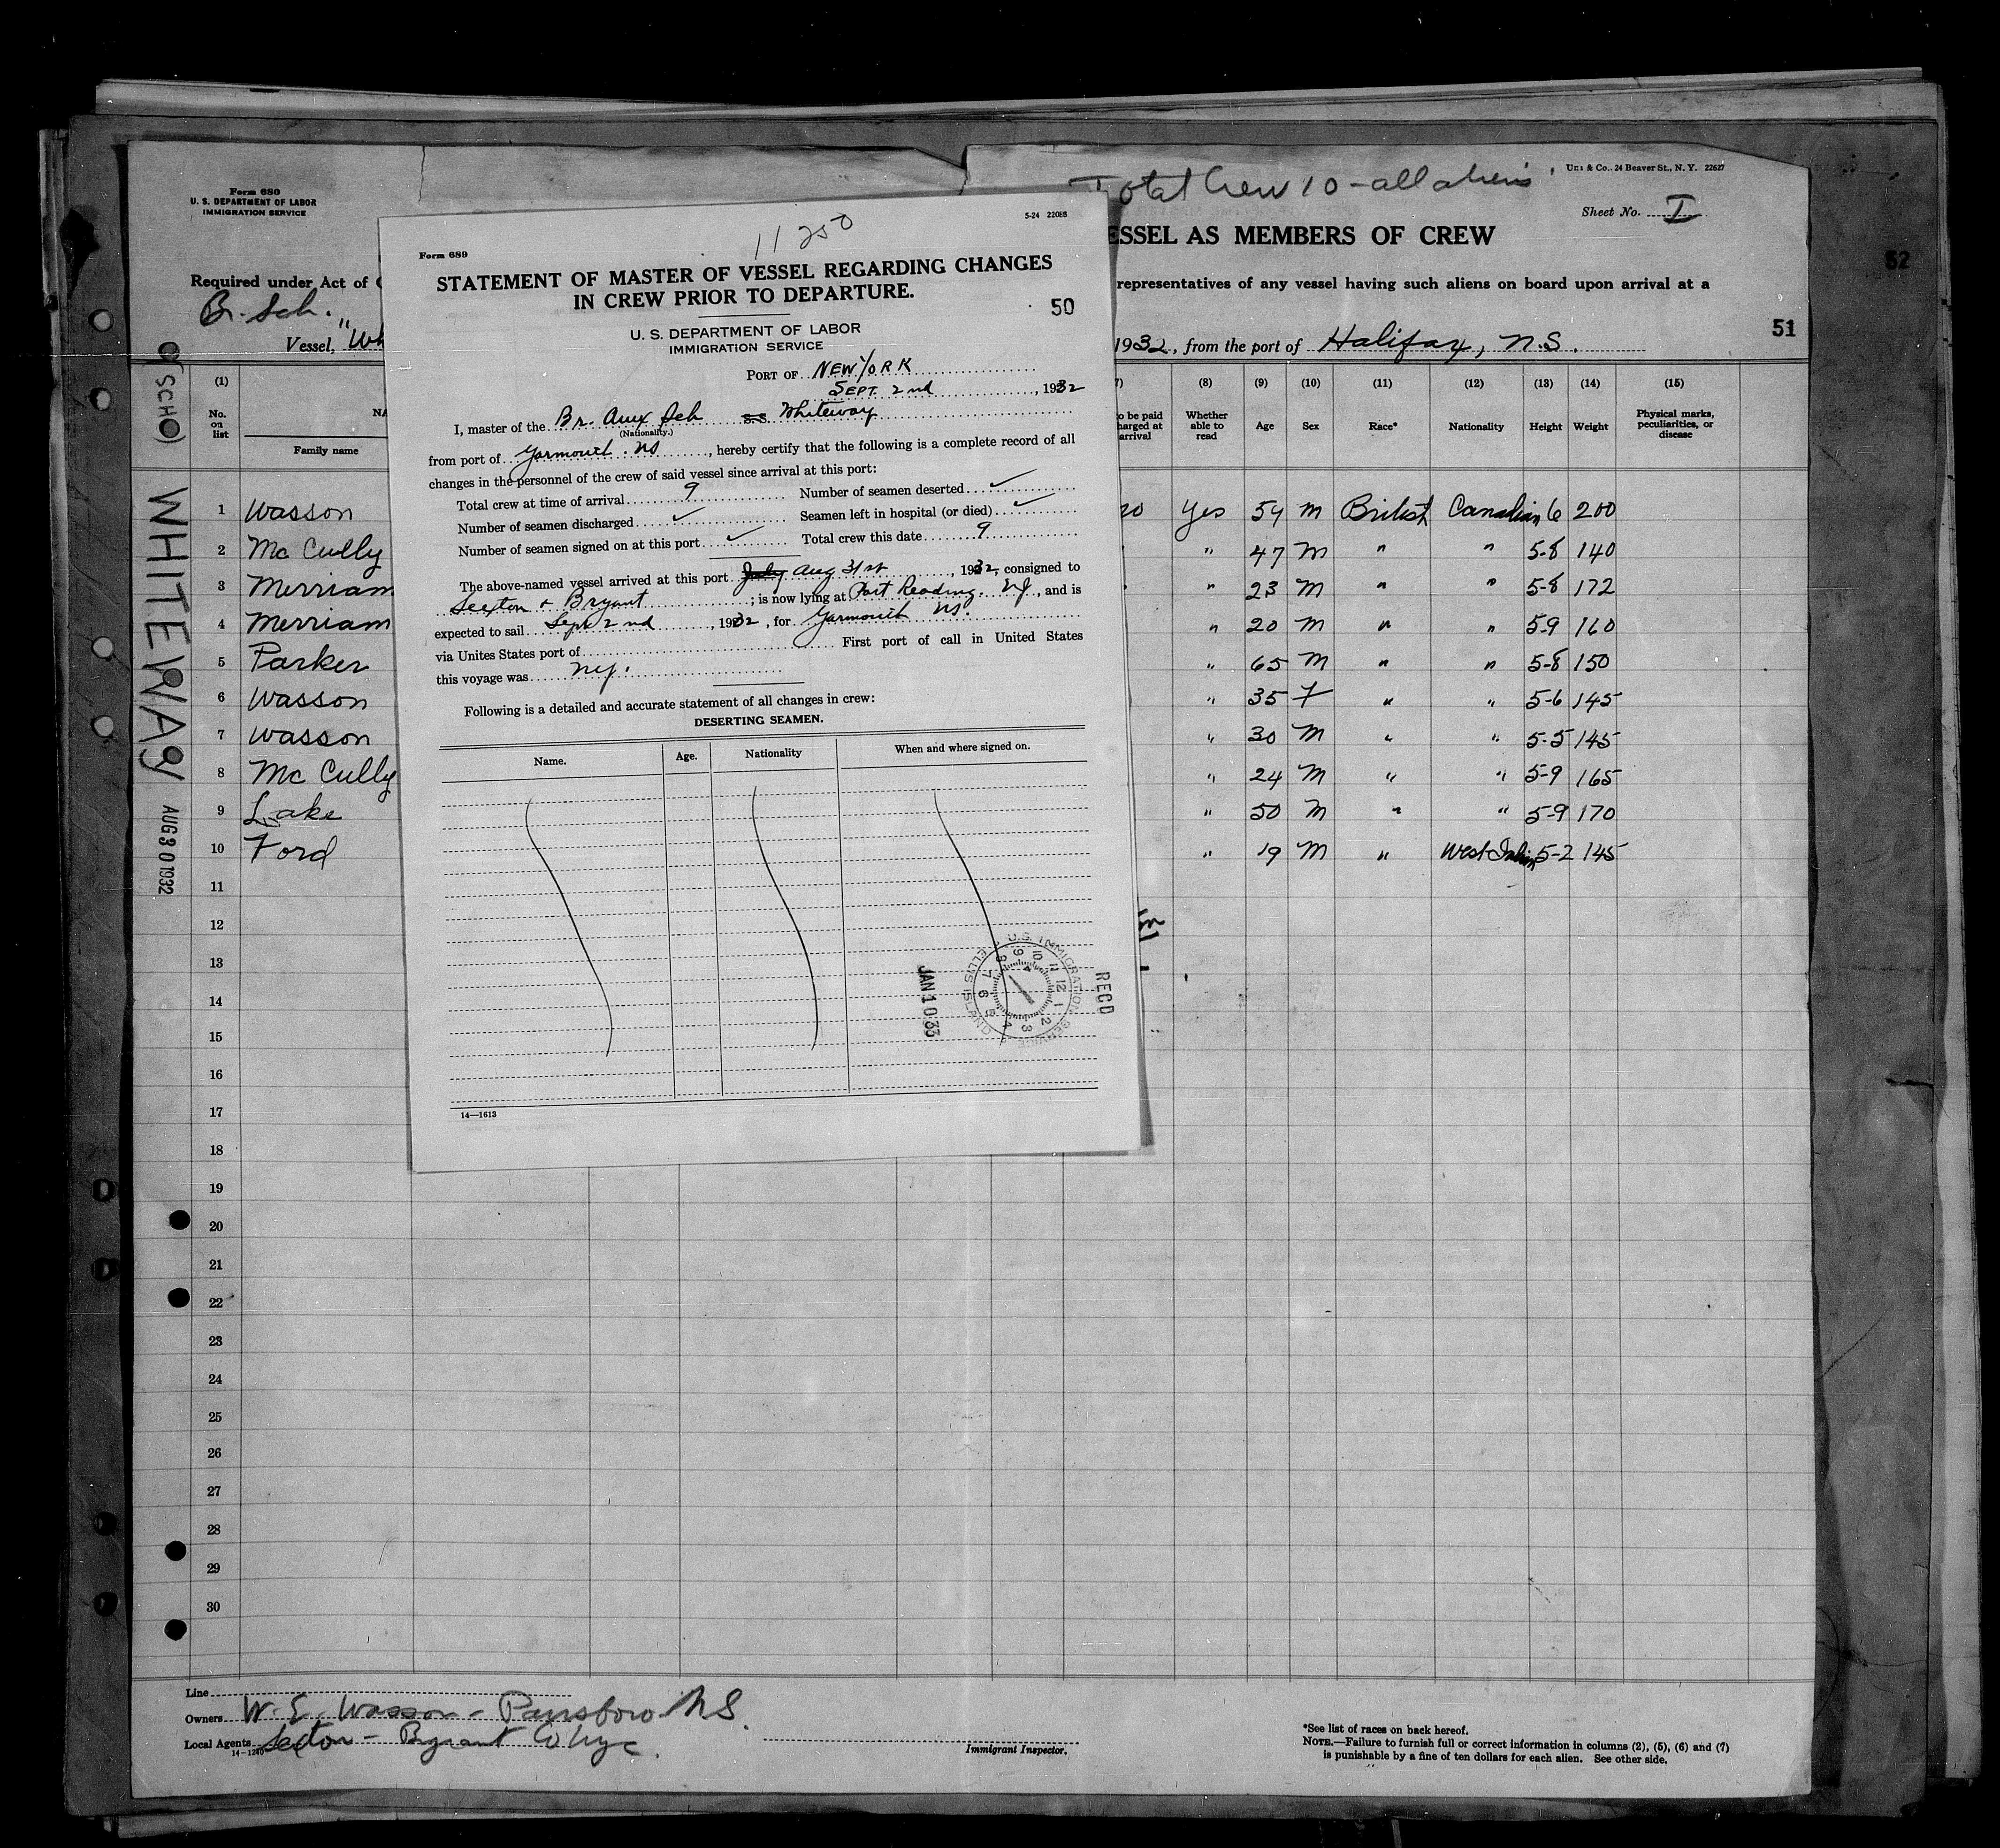 Total Crew 10 - all aliens
Uns & Co., 24 Beaver St., N. Y. 22627
Form 680
U. S. DEPARTMENT OF LABOR
IMMIGRATION SERVICE
Sheet No. I
ESSEL AS MEMBERS OF CREW
Required under Act of
representatives of any vessel having such aliens on board upon arrival at a
Br. Sch.
Vessel, "Wh
1932, from the port of Halifax, N.S.
51
52
(SCHO)
WHITEWAY
AUG 30 1932
5-24 22088
11250
Form 689
STATEMENT OF MASTER OF VESSEL REGARDING CHANGES
IN CREW PRIOR TO DEPARTURE.
50
U. S. DEPARTMENT OF LABOR
IMMIGRATION SERVICE
PORT OF NEW YORK
SEPT. 2nd, 1932
I, master of the Br. Aux Sch S.S. Whiteway
(Nationality.)
from port of Yarmouth. NS, hereby certify that the following is a complete record of all
changes in the personnel of the crew of said vessel since arrival at this port:
Total crew at time of arrival 9 Number of seamen deserted ✓
Number of seamen discharged ✓ Seamen left in hospital (or died) ✓
Number of seamen signed on at this port ✓ Total crew this date 9
The above-named vessel arrived at this port July Aug 31st, 1932, consigned to
Sexton & Bryant; is now lying at Port Reading. NJ, and is
expected to sail Sept 2nd, 1932, for Yarmouth NS.
via Unites States port of First port of call in United States
this voyage was NY.
Following is a detailed and accurate statement of all changes in crew:
DESERTING SEAMEN.
Name. Age. Nationality When and where signed on.
U.S. IMMIGRATION SERVICE ELLIS ISLAND
RECD
JAN 10 33
14—1613
(1) (8) (9) (10) (11) (12) (13) (14) (15)
No. on list
Family name
o be paid
harged at
arrival
Whether able to read
Age
Sex
Race*
Nationality
Height
Weight
Physical marks, peculiarities, or disease
1 Wasson 20 Yes 54 M British Canadian 6 200
2 Mc Cully " 47 M " " 5-8 140
3 Merriam " 23 M " " 5-8 172
4 Merriam " 20 M " " 5-9 160
5 Parker " 65 M " " 5-8 150
6 Wasson " 35 F " " 5-6 145
7 Wasson " 30 M " " 5-5 145
8 Mc Cully " 24 M " " 5-9 165
9 Lake " 50 M " " 5-9 170
10 Ford " 19 M " West Indian 5-2 145
11
12
13
14
15
16
17
18
19
20
21
22
23
24
25
26
27
28
29
30
Line
Owners W. E. Wasson - Parrsboro N.S.
Local Agents Sexton - Bryant Co NYC.
14-1240
Immigrant Inspector.
*See list of races on back hereof.
NOTE.—Failure to furnish full or correct information in columns (2), (5), (6) and (7)
is punishable by a fine of ten dollars for each alien. See other side.